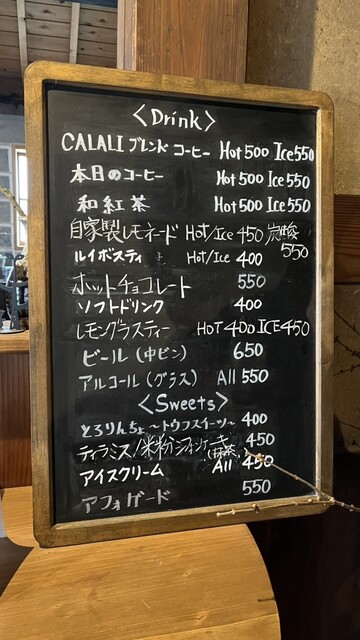 <Drink>
CALALI ブレンド コーヒー Hot 500 Ice 550
本日のコーヒー Hot 500 Ice 550
和紅茶 Hot 500 Ice 550
自家製レモネード Hot/Ice 450/炭酸 550
ルイボスティ Hot/Ice 400
ホットチョコレート 550
ソフトドリンク 400
レモングラスティー HOT 400 ICE 450
ビール(中ビン) 650
アルコール(グラス) All 550
<Sweets>
とろりんちょ ~トウフスイーツ~ 400
ティラミス/米粉シフォンケーキ(抹茶) 450
アイスクリーム All 450
アフォガード 550